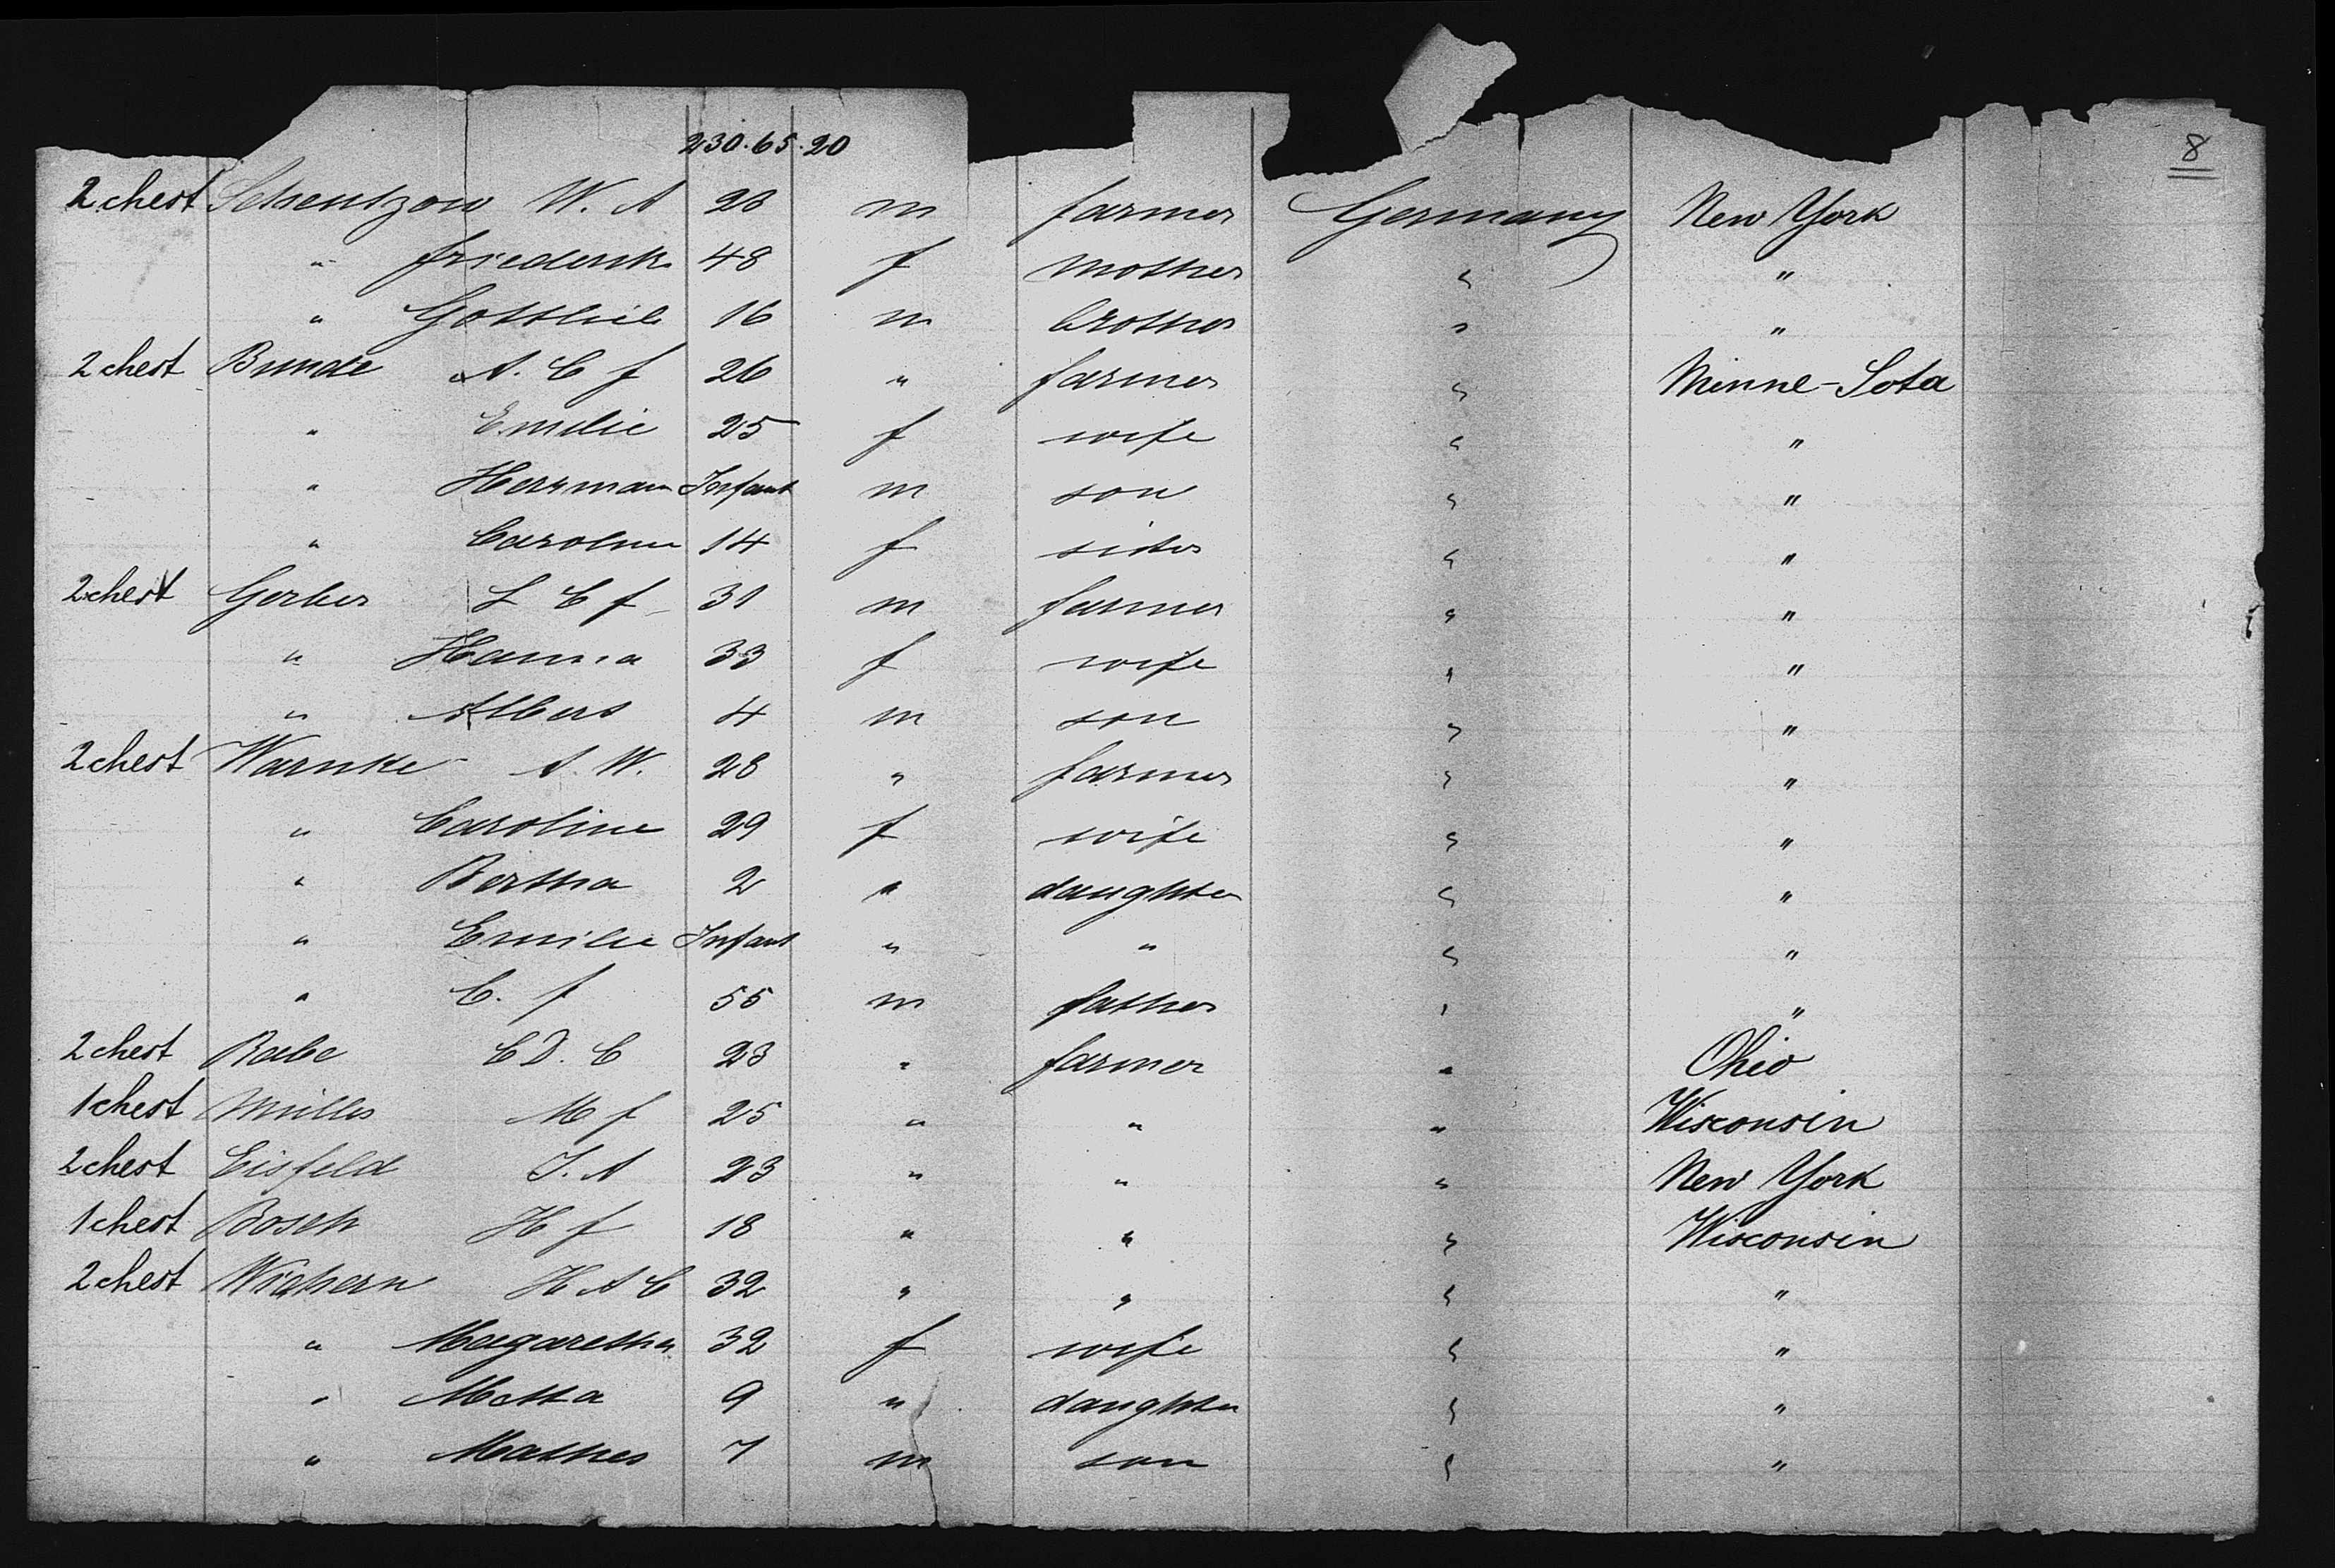 230. 65. 20
8
2 chest Schentzow W. A 28 m farmer Germany New York
" Friederik 48 f mother " "
" Gottlieb 16 m brother " "
2 chest Bunde A. C f 26 " farmer " Minne-Sota
" Emilie 25 f wife " "
" Herrman Infant m son " "
" Caroline 14 f sister " "
2 chest Gerber L C f 31 m farmer " "
" Hanna 33 f wife " "
" Albert 4 m son " "
2 chest Warnke A. W. 28 " farmer " "
" Caroline 29 f wife " "
" Bertha 2 " daughter " "
" Emilie Infant " " " "
" C. f 55 m father " "
2 chest Rabe C D. C 23 " farmer " Ohio
1 chest Müller M f 25 " " " Wisconsin
2 chest Eisfeld J. A 23 " " " New York
1 chest Bosch H f 18 " " " Wisconsin
2 chest Wichern H A C 32 " " " "
" Magaretha 32 f wife " "
" Metta 9 " daughter " "
" Mathes 7 m son " "